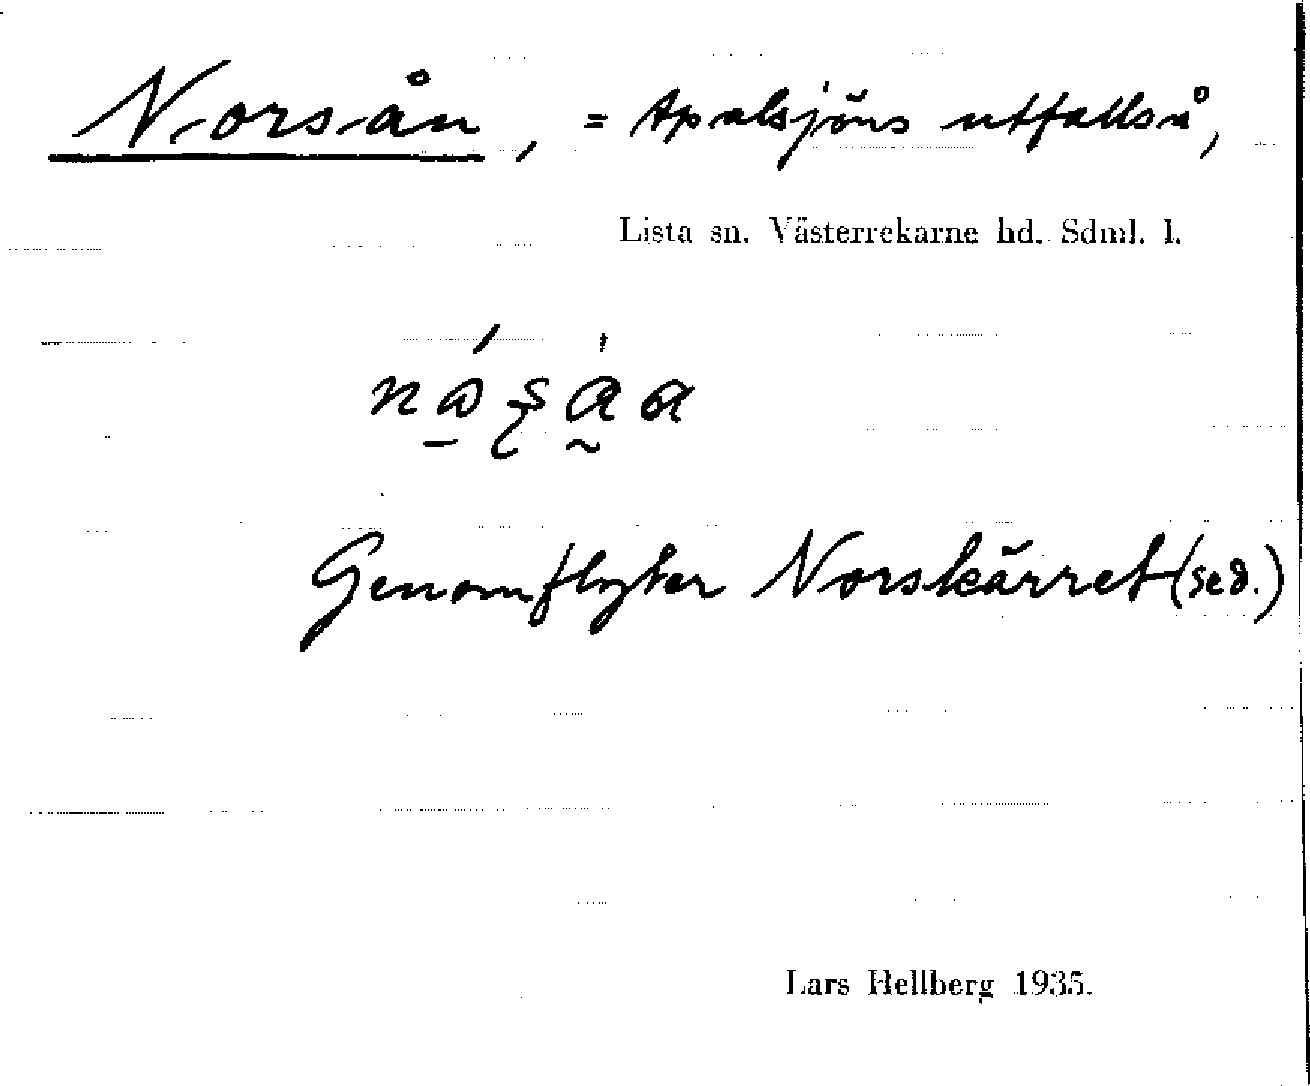 Norsån, = Apalsjöns utfallså,
Lista sn. Västerrekarne hd. Sdml. l.
Genomflyter Norskärret (sed.)
Lars Hellberg 1935.